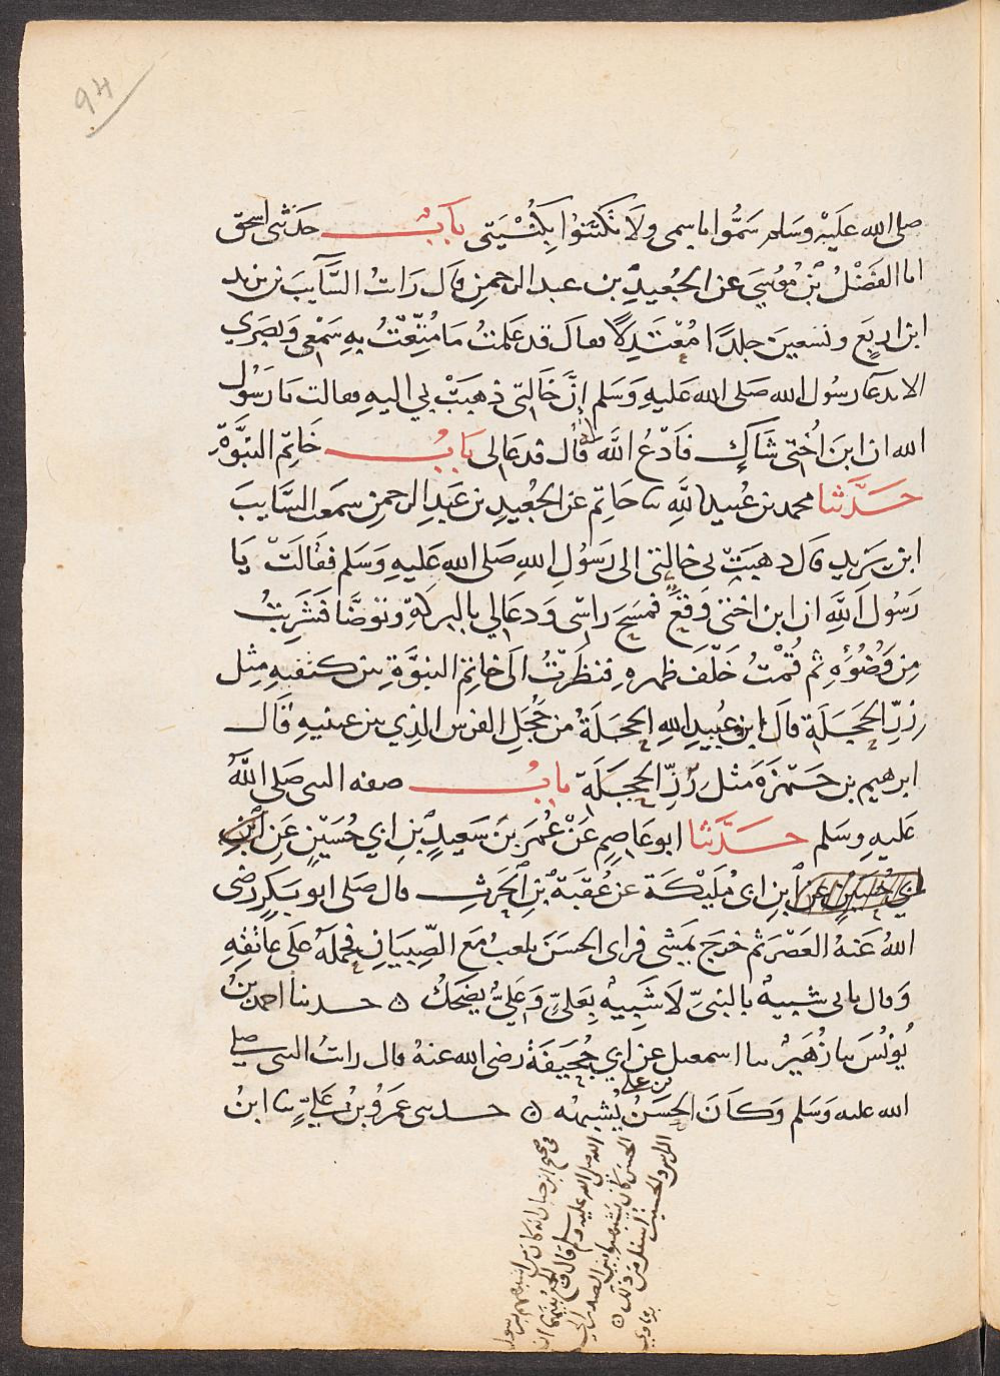 94
صلى الله عليه وسلم سَمُّوا باسمى ولا تكتنوا بكُنْيَتى بابُ حدثنى اسحق
انا الفَضْلُ بْنُ مُوْسَى عن الجُعَيدِ بن عبد الرحمنِ قال رَاتُ السَّآيبَ بن يزيد
ابن اربعٍ وتسعين جلدًا مُعْتَدِلًا فقال قد عَلمتُ مَا مُتِّعْتُ بِهِ سَمْعِى وَبَصَرِي
الا بدعآ رسُول الله صَلى الله عَليهِ وَسَلم إنَّ خَالتى ذهَبَتْ بي اليهِ فقالت يَا رَسُول
الله ان ابنَ اُختى شَاكٍ فَادْعُ اللَّهَ له قال فدعَا لى بَابُ خَاتِم النبُوَّةِ
حَدَّثنا محمد بن عُبيد اللَّهِ نا حَاتِم عن الجُعَيدِ بن عَبدِ الرحمنِ سمعت السَّايبَ
ابن يَزِيد قال ذهبَتْ بي خالتى الى رَسُولِ اللهِ صلى الله عَليهِ وَسَلم فقالَتْ يَا
رَسُولَ اللَّهِ ان ابن اختى وَقِعٌ فمسَحَ راسى وَدعَا لي بالبركةِ وتوضَّا فشَرِبْتُ
مِن وَضُوئِهِ ثم قُمْتُ خَلْفَ ظهره فنظَرْتُ الَى خاتِم النبوَّةِ بين كتفيهِ مِثل
زِرِّ الحَجَلَةِ قالَ ابن عُبيدِ اللهِ الحجلَةُ من حُجَلِ الفرس الذِي بين عينيهِ قَال
ابرهيم بن حَمْزَةَ مَثل رُزِّ الحجَلَة بابُ صفه النبى صَلى اللَّهُ
عَليهِ وسَلم حَدَّثنا ابو عَاصِمٍ عَنْ عُمَرَ بنَ سَعِيدِ بْنِ ابي حُسَيْنٍ عَنِ ابْنِ
ابي حُسَيْنٍ عن ابْنِ ابى مُلَيْكَة عن عُقبَةَ بْنِ الحَرثِ قال صَلى ابو بَكرٍ رضى
اللهُ عَنهُ العَصْرَ ثم خرَجَ يَمْشى فراى الحسَنَ يلعبُ مَعَ الصِّبيَانِ فحملَهُ عَلَى عاتقِهِ
وَقال بابى شبيهٌ بالنبىِّ لَا شَبِيهٌ بِعَلىٍّ وَعَلِيٌّ يضحَكُ ٥ حدثنا احمد بنُ
يُونُسَ نا زُهَيرٌ نا اسمعيل عن ابي جُحَيفَةَ رضى الله عنهُ قال رَاتُ النبى صلى
الله عليه وَسَلم وَكانَ الحسَنُ بن علي يُشْبِهُه ٥ حدثنى عَمرُو بنُ عَليٍّ نا ابنُ
فى صحيح ابن حبان